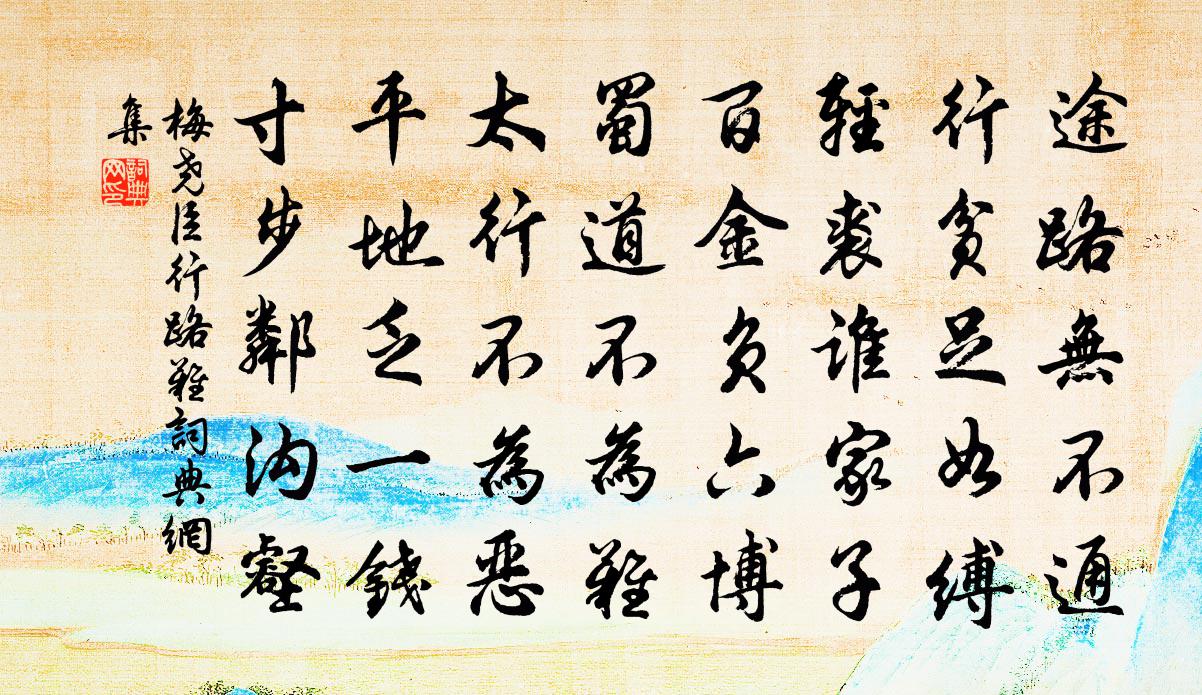 途路無不通
行貧足如縛
輕裘誰家子
百金負六博
蜀道不為難
太行不為惡
平地乏一錢
寸步鄰溝壑
梅堯臣行路難詞典網
集
詞典
网印